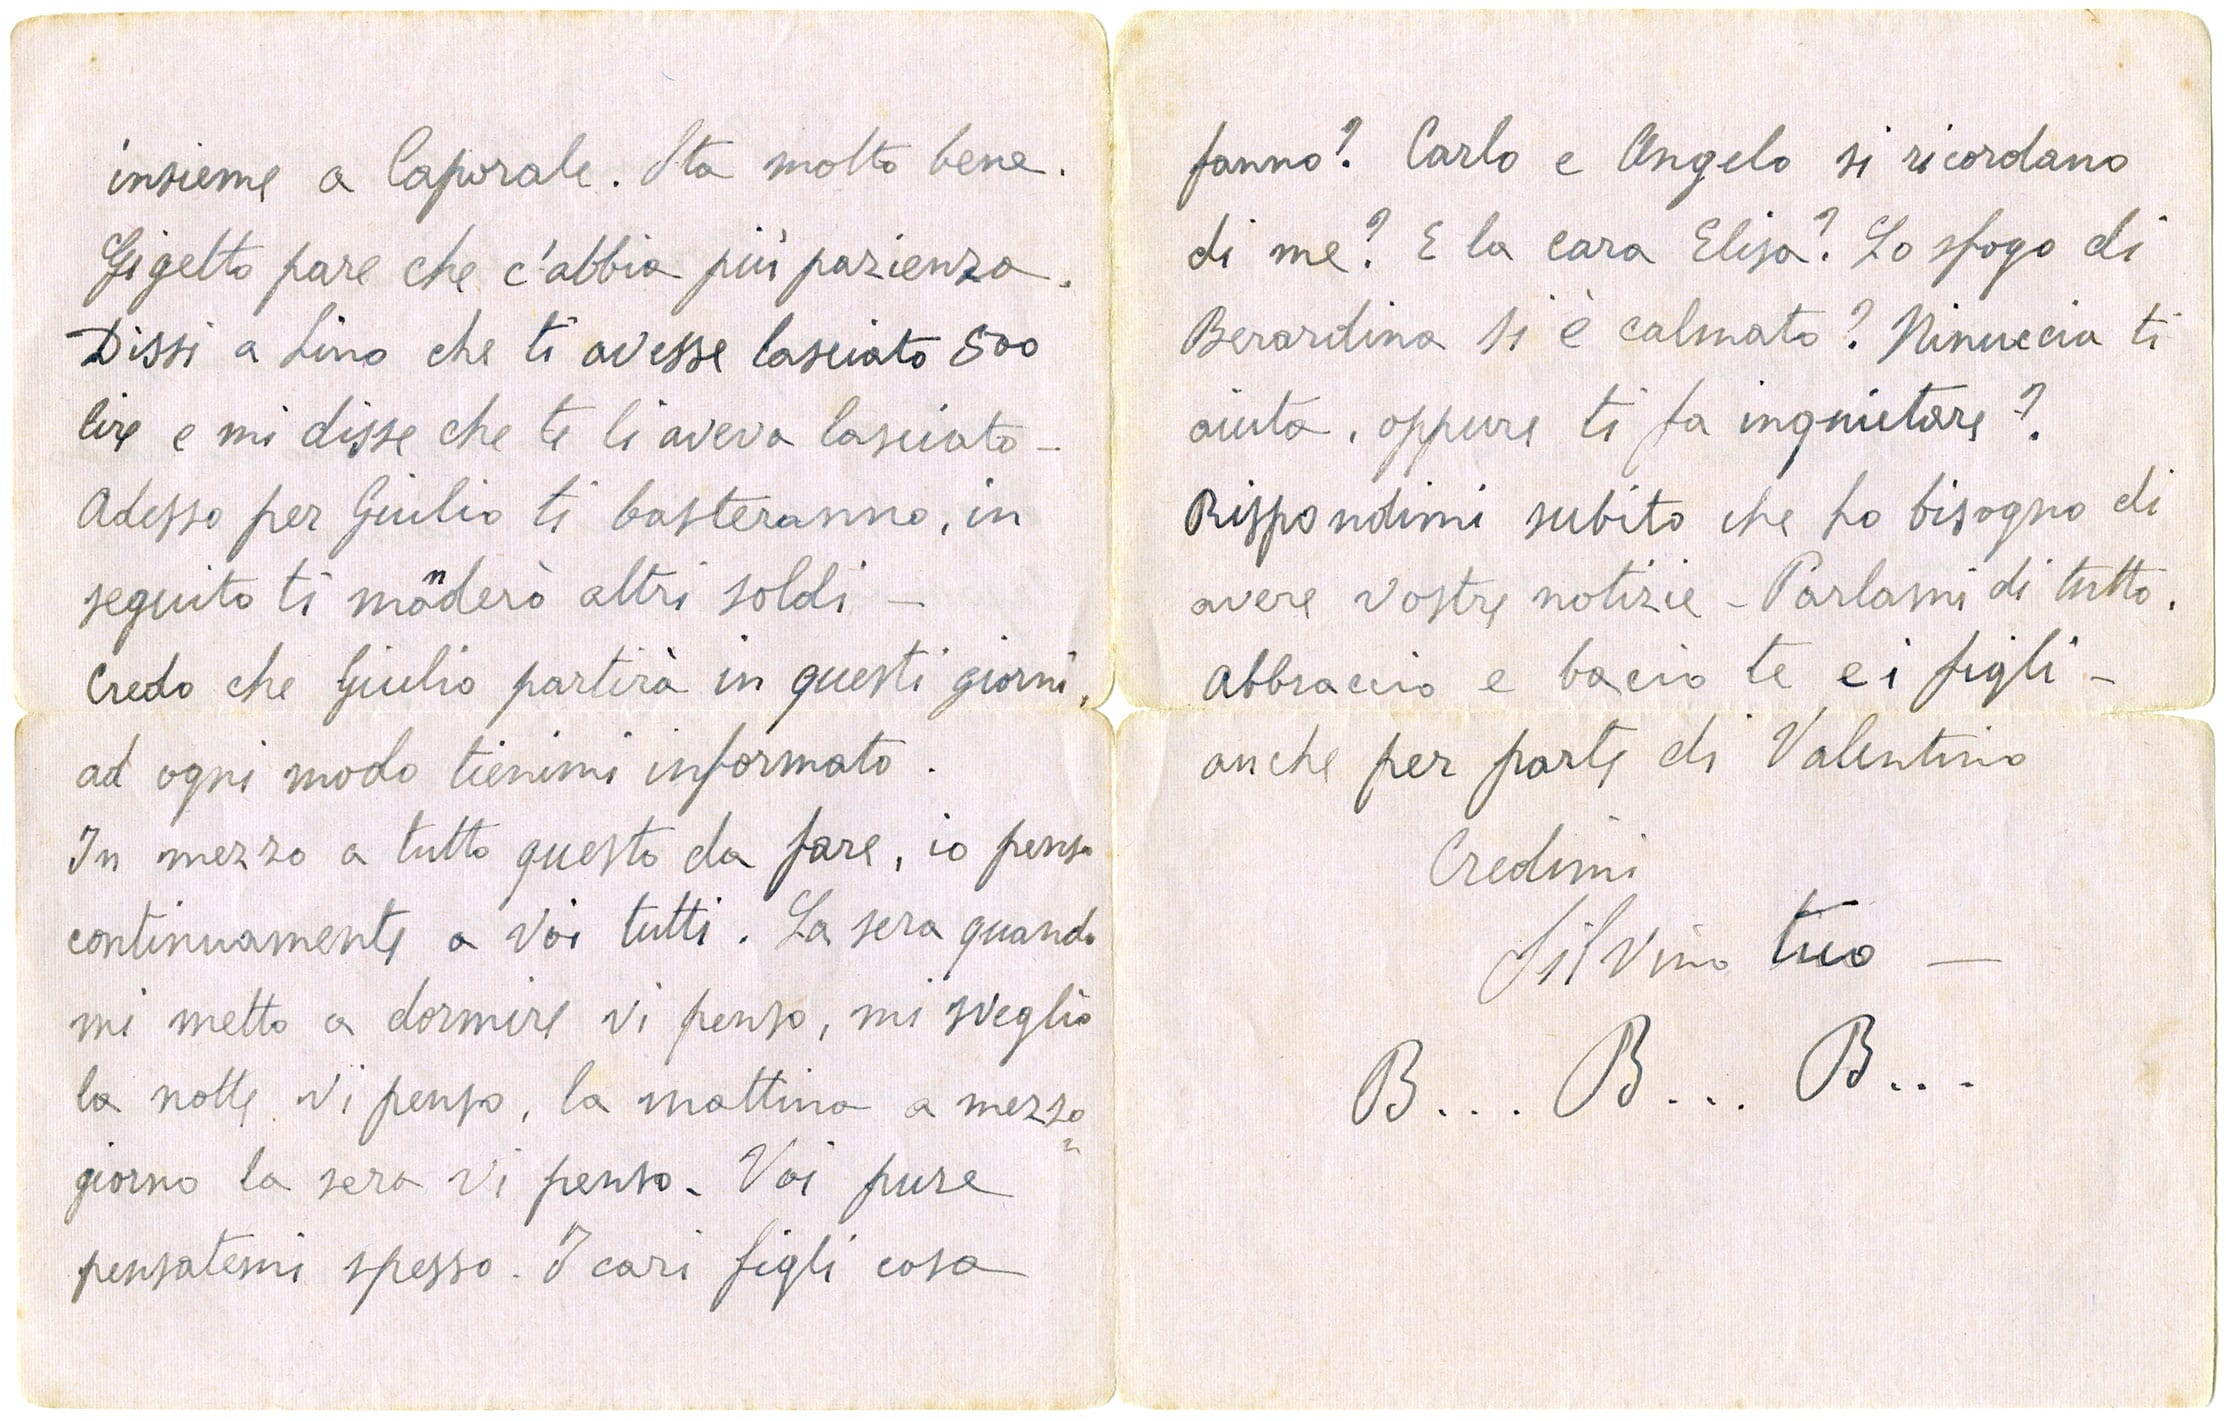 insieme a Caporale. Sta molto bene.
Gigetto pare che c'abbia più pazienza.
Dissi a Lino che ti avesse lasciato 500
lire e mi disse che te li aveva lasciato –
Adesso per Giulio ti basteranno, in
seguito ti manderò altri soldi –
Credo che Giulio partirà in questi giorni,
ad ogni modo tienimi informato.
In mezzo a tutto questo da fare, io penso
continuamente a voi tutti. La sera quando
mi metto a dormire vi penso, mi sveglio
la notte vi penso, la mattina a mezzo
=
giorno la sera vi penso. Voi pure
pensatemi spesso. I cari figli cosa
fanno? Carlo e Angelo si ricordano
di me? E la cara Elisa? Lo sfogo di
Berardina si è calmato? Ninuccia ti
aiuta, oppure ti fa inquietare?
Rispondimi subito che ho bisogno di
avere vostre notizie – Parlami di tutto.
Abbraccio e bacio te e i figli –
anche per parte di Valentino
Credimi
Silvino tuo –
B.... B.... B....